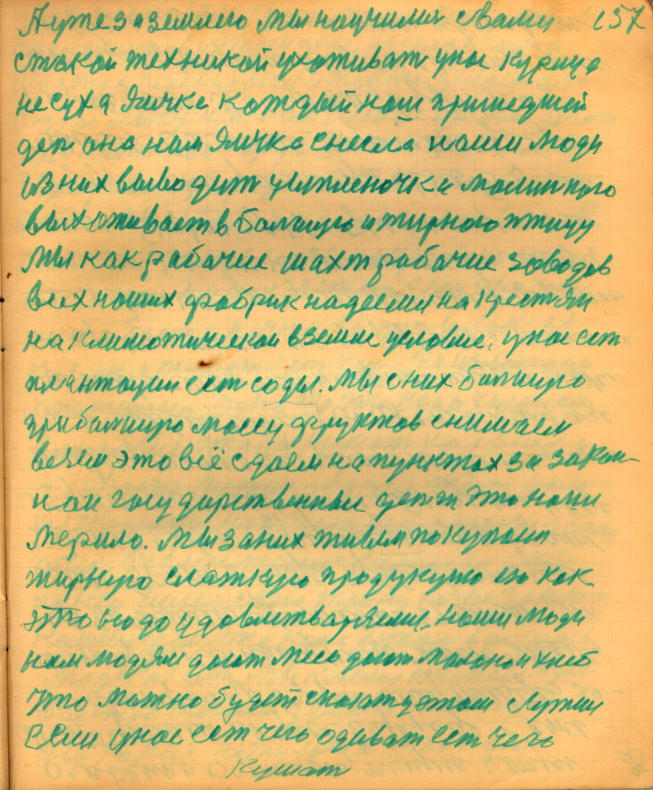 А уже за землею мы научились с вами 157
с такой техникой ухаживат унас курица
несуха яичка каждый наш пришедший
ден она нам яичка снесла наши люди
из них выводит цыпленочка малинкого
выхаживает в балшую и жирною птицу
Мы как рабачие шахт рабачие заводов
всех наших фабрик надеемся на крестян
на климотическои вземле условие, унас ест
плантации ест сады. Мы сних балшую
прибалшую массу фруктов снимаем
везем это всё сдаем на пунктах за закон
наи государственные денги это наши
мерило. Мы за них живем покупаем
жирную слаткую продукцию ею как
это надо удовлетваряемся, наши люди
нам людям дают мясо дают малако и хлеб
что можно будет сказат дэтом лучши
Если унас ест чего одеват ест чего
кушат